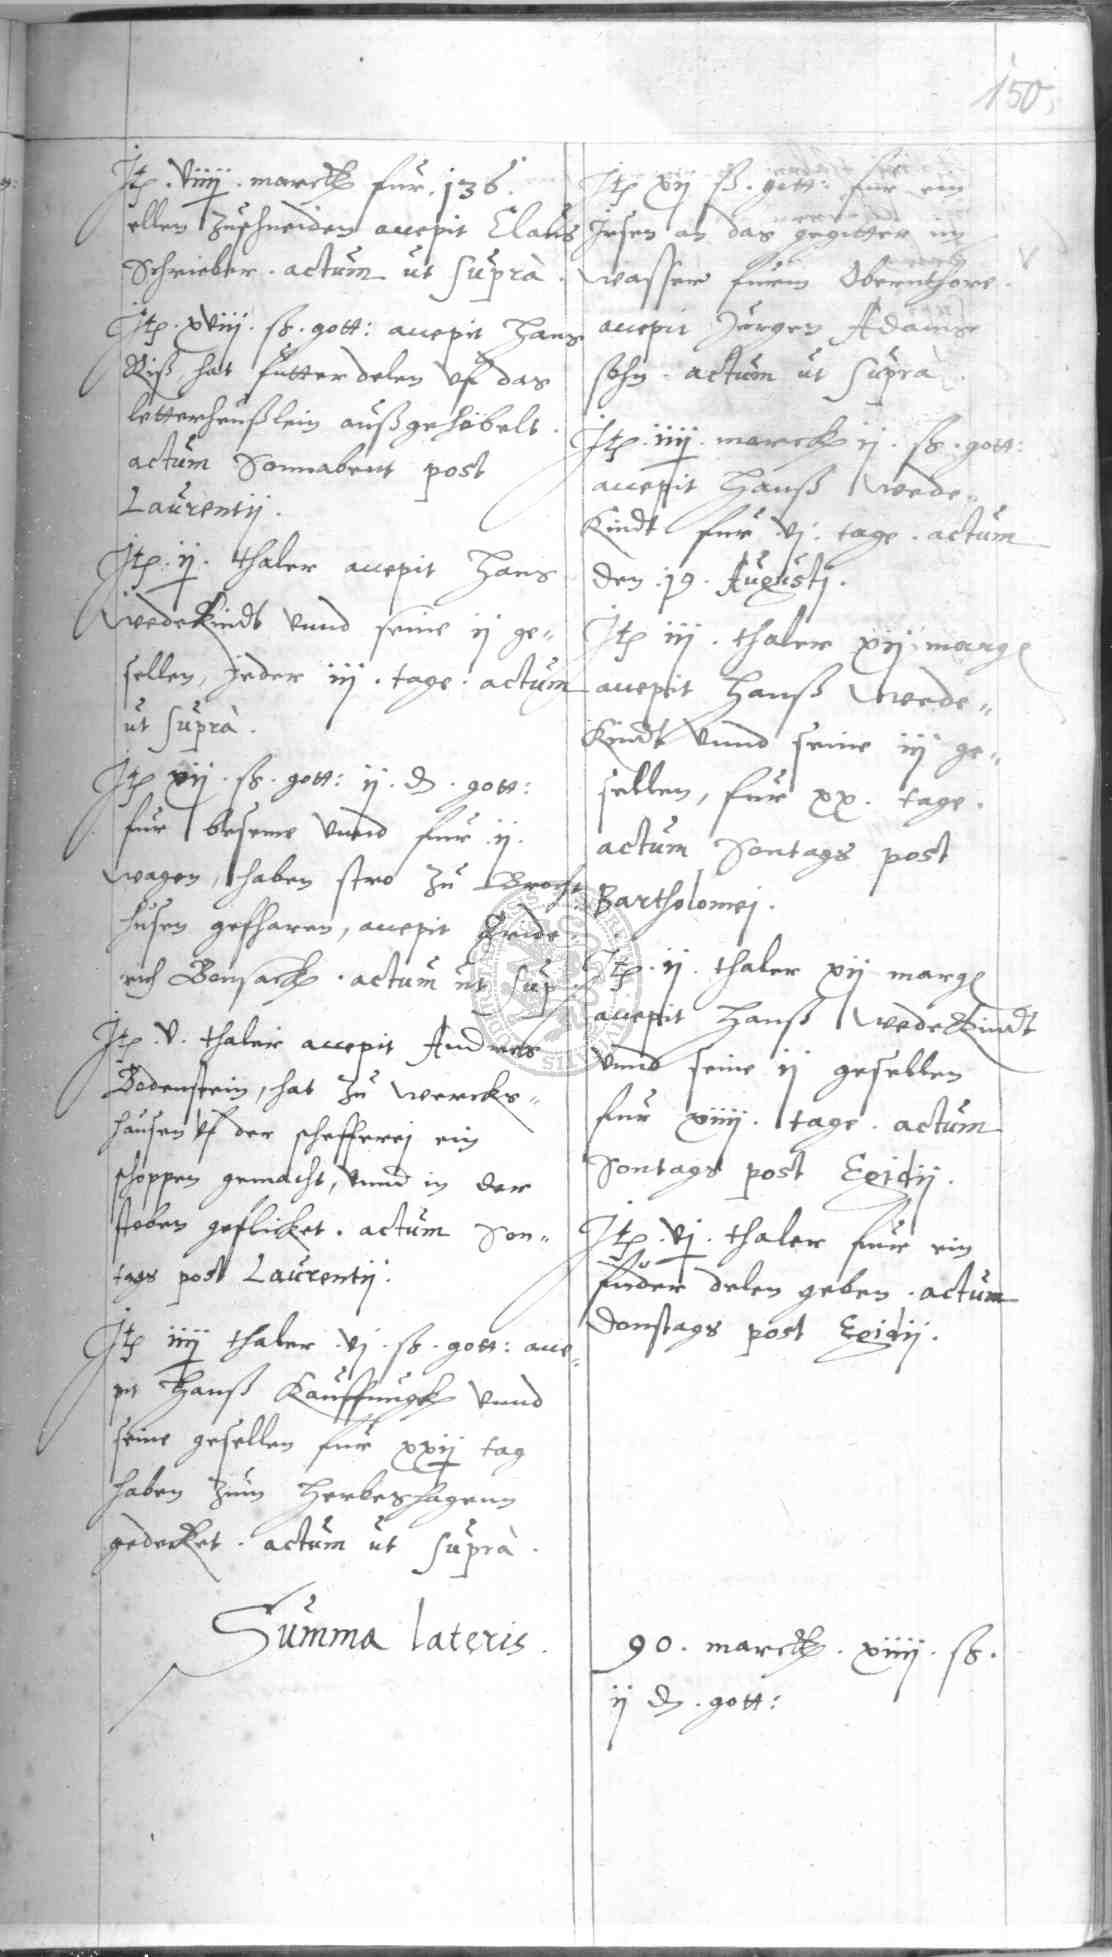 150
Itp. viiij. marck fur. 136.
ellen zuschneiden accepit Claus
Schrieber. actum ut suprà.
Itp. xviij. ß. gott: accepit Hans
Riß, hat futterdelen uf das
letterheußlein außgehobelt.
actum Sonnabent post
Laurentij.
Itp. ij. thaler accepit Hans
Wedekindt unnd seine ij ge„
sellen, Jeder iij. tage. actum
ut suprà.
Itp xij. ß. gott: ij. d. gott:
fur beseme unnd fur ij.
wagen, haben stro zu Broch„
husen gefharen, accepit Fride„
rich Bonsack. actum ut sup.
Itp. v. thaler accepit Andres
Bodenstein, hat zu Wercks„
hausen uf der schefferej ein
schoppen gemacht, unnd in der
stoben geflicket. actum Son„
tags post Laurentij.
Itp iiij thaler vj. ß. gott: acce„
pit Hanß Kauffungk unnd
seine gesellen fur xxij tag
haben zum Herbershagenn
gedecket. actum ut suprà.
Summa lateris.
Itp xij ß. gott: fur ein
Jsen an das gegitter im
wasser furm Obernthore.
accepit Jurgen Adams
sohn. actum ut suprà.
Itp. iiij. marck ij. ß. gott:
accepit Hanß Wede„
Kindt fur vj. tage. actum
den. 19. Augustj.
Itp iij. thaler xij marg
accepit Hanß Wede„
Kindt unnd seine iij ge„
sellen, fur xx. tage.
actum Sontags post
Bartholomej.
Itp. ij. thaler xij marg
accepit Hanß Wedekindt
unnd seine ij gesellen
fur xiiij. tage. actum
Sontags post Egidij.
Itp. vj. thaler fur ein
fuder delen geben. actum
Donstags post Egidij.
90. marck. xiiij. ß.
ij d. gott: